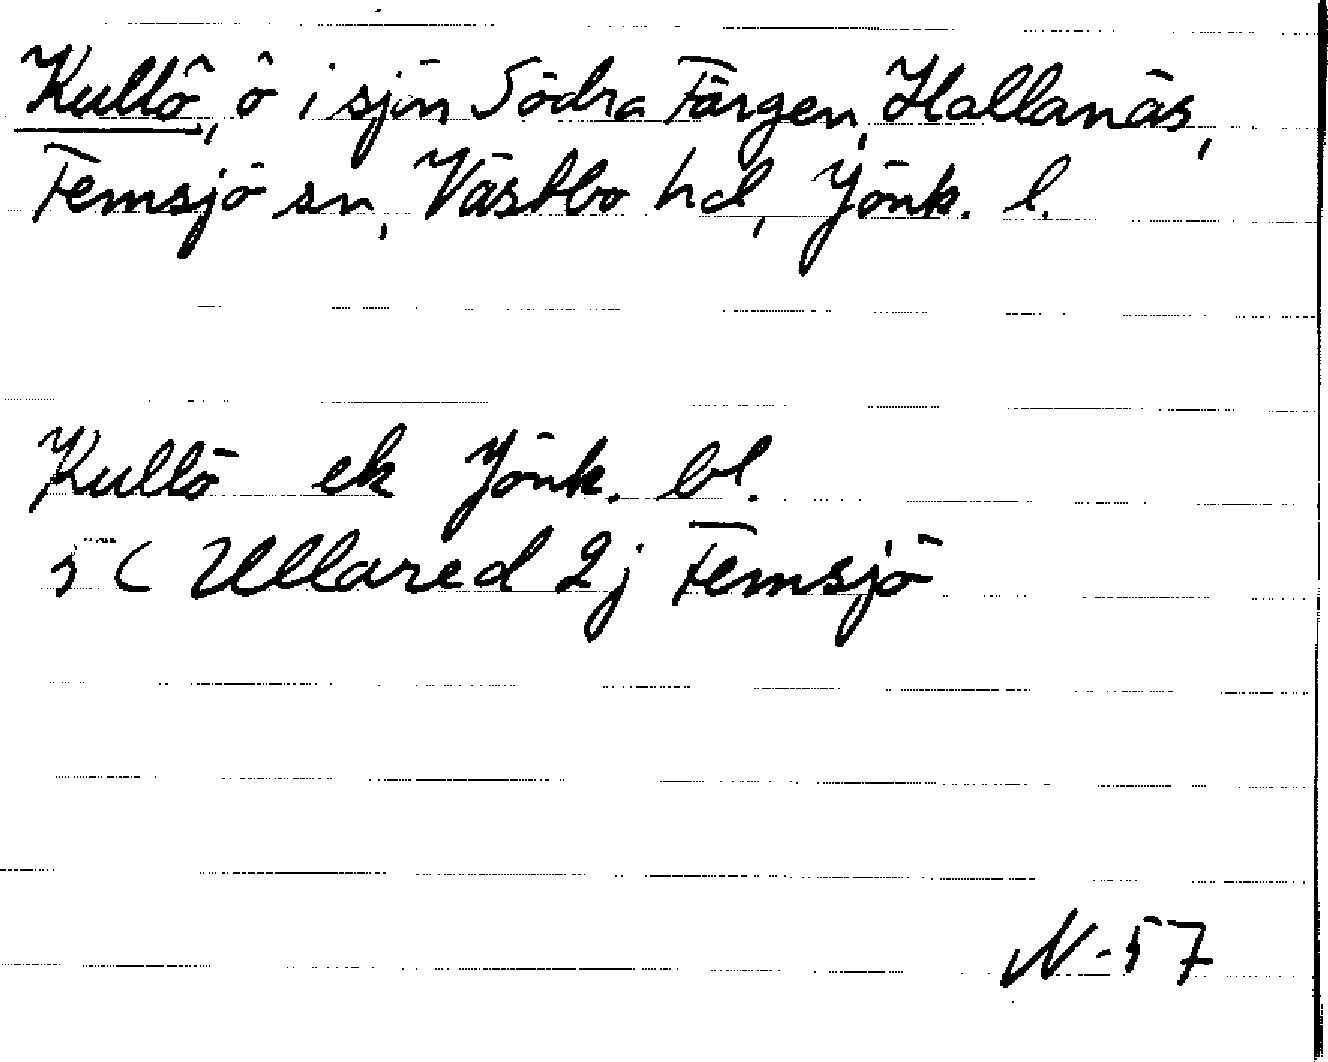 Kullö, ö i sjön Södra Färgen, Hallanäs,
Femsjö sn, Västbo hd, Jönk. l.
Kullö ek Jönk. bl.
5C Ullared 2j Femsjö
N-57